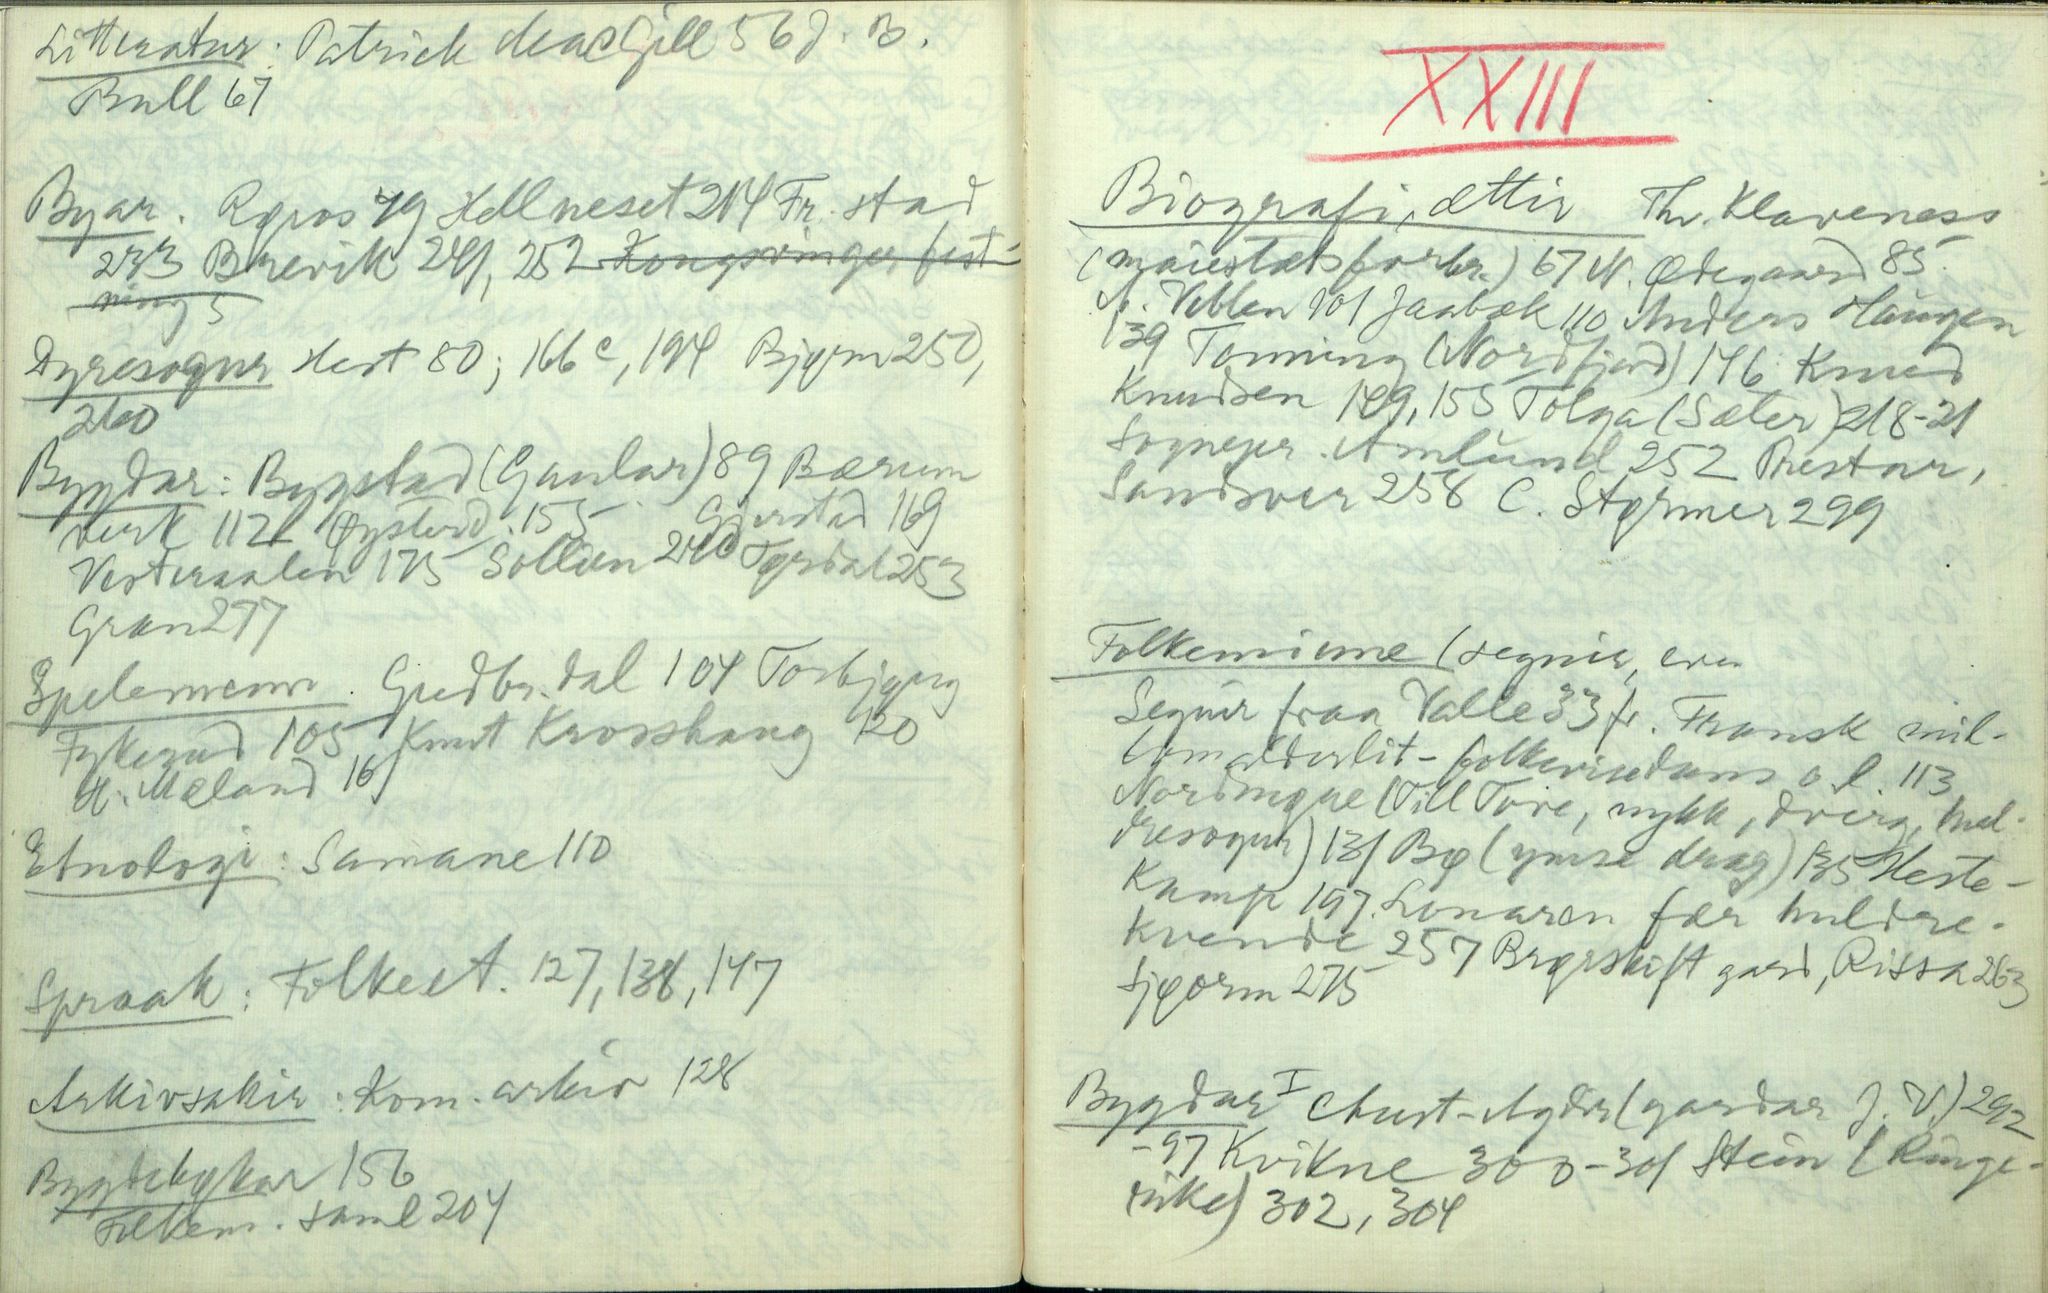 Litteratur: Patrick MacGill 56 J. B.
Bull 67
Byar. Røros 79 Hellneset 214 Fr.stad
233 Brevik 241, 252 Kongsvinger fest-
ning 5
Dyresogur Hest 80; 166 c, 194 Bjørn 250,
260
Bygdar: Bygstad (Gaular) 89 Bærum
verk 112 Østerd. 155 Gjerstad 169
Vesteraalen 175 Sollien 240 Tørdal 253
Gran 277
Spelemenn Gudbr.dal 104 Torbjørg
Fykerud 105 Knut Krosshaug 120
H. Mæland 161
Etnologi: Samane 110
Spraak: Folkeet. 127, 138, 147
Arkivsakir: Kom. arkiv 128
Bygdebøkar 156
Folkem. saml 204
XXIII
Biografi, ættir Thv. Klaveness
(majestætsforbr.) 67 N. Ødegaard 85.
A. Veblen 101 Jaabæk 110 Anders Haugen
139 Tonning (Nordfjord) 146 Knud
Knudsen 149, 155 Tolga (Sæter) 218-21
Sognepr. Amlund 252 Prestar,
Sandsvær 258 C. Størmer 299
Folkeminne (segnir,
Segnir fraa Valle 33 fr. Fransk mil-
lomalderlit- folkevisedans o.l. 113
Nordmøre (Till Tore, nykk, dverg, hul-
dresogur) 131 Bø (ymse drag) 135 Heste-
kamp 197. Lonaren fær huldre-
kvende 257 Brørskift gard, Rissa 263
Sjøorm 275
Bygdar I Aust-Agder (gardar J. V.) 292
-97 Kvikne 300-301 Stein (Ringe-
rike) 302, 304